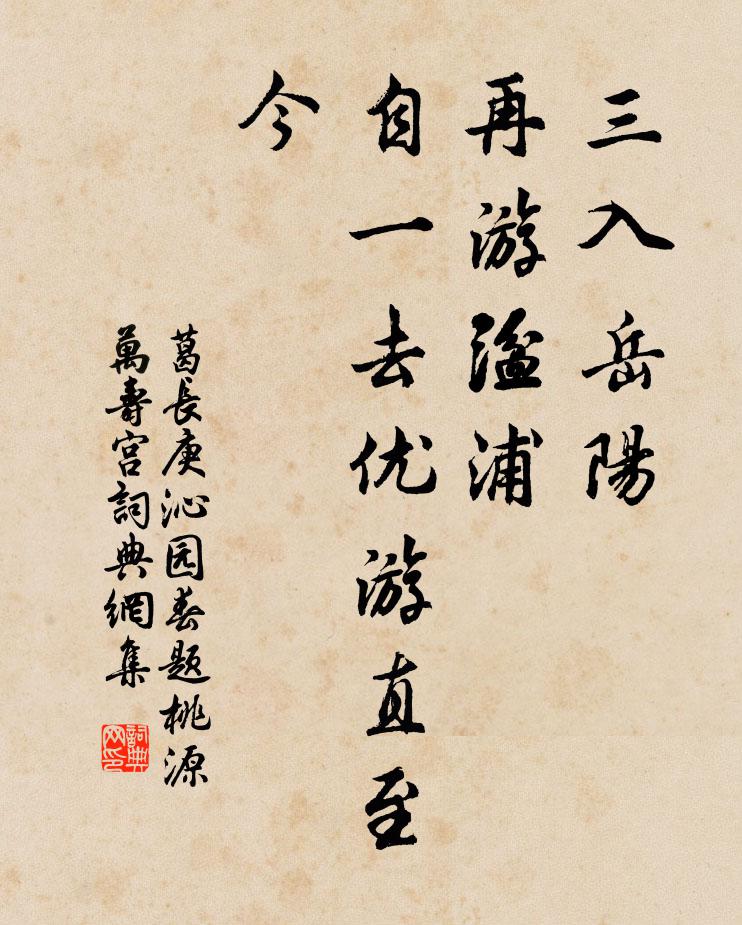 三入岳陽
再游湓浦
自一去优游直至
今
葛長庚沁园春題桃源
萬壽宫詞典網集
詞典网印